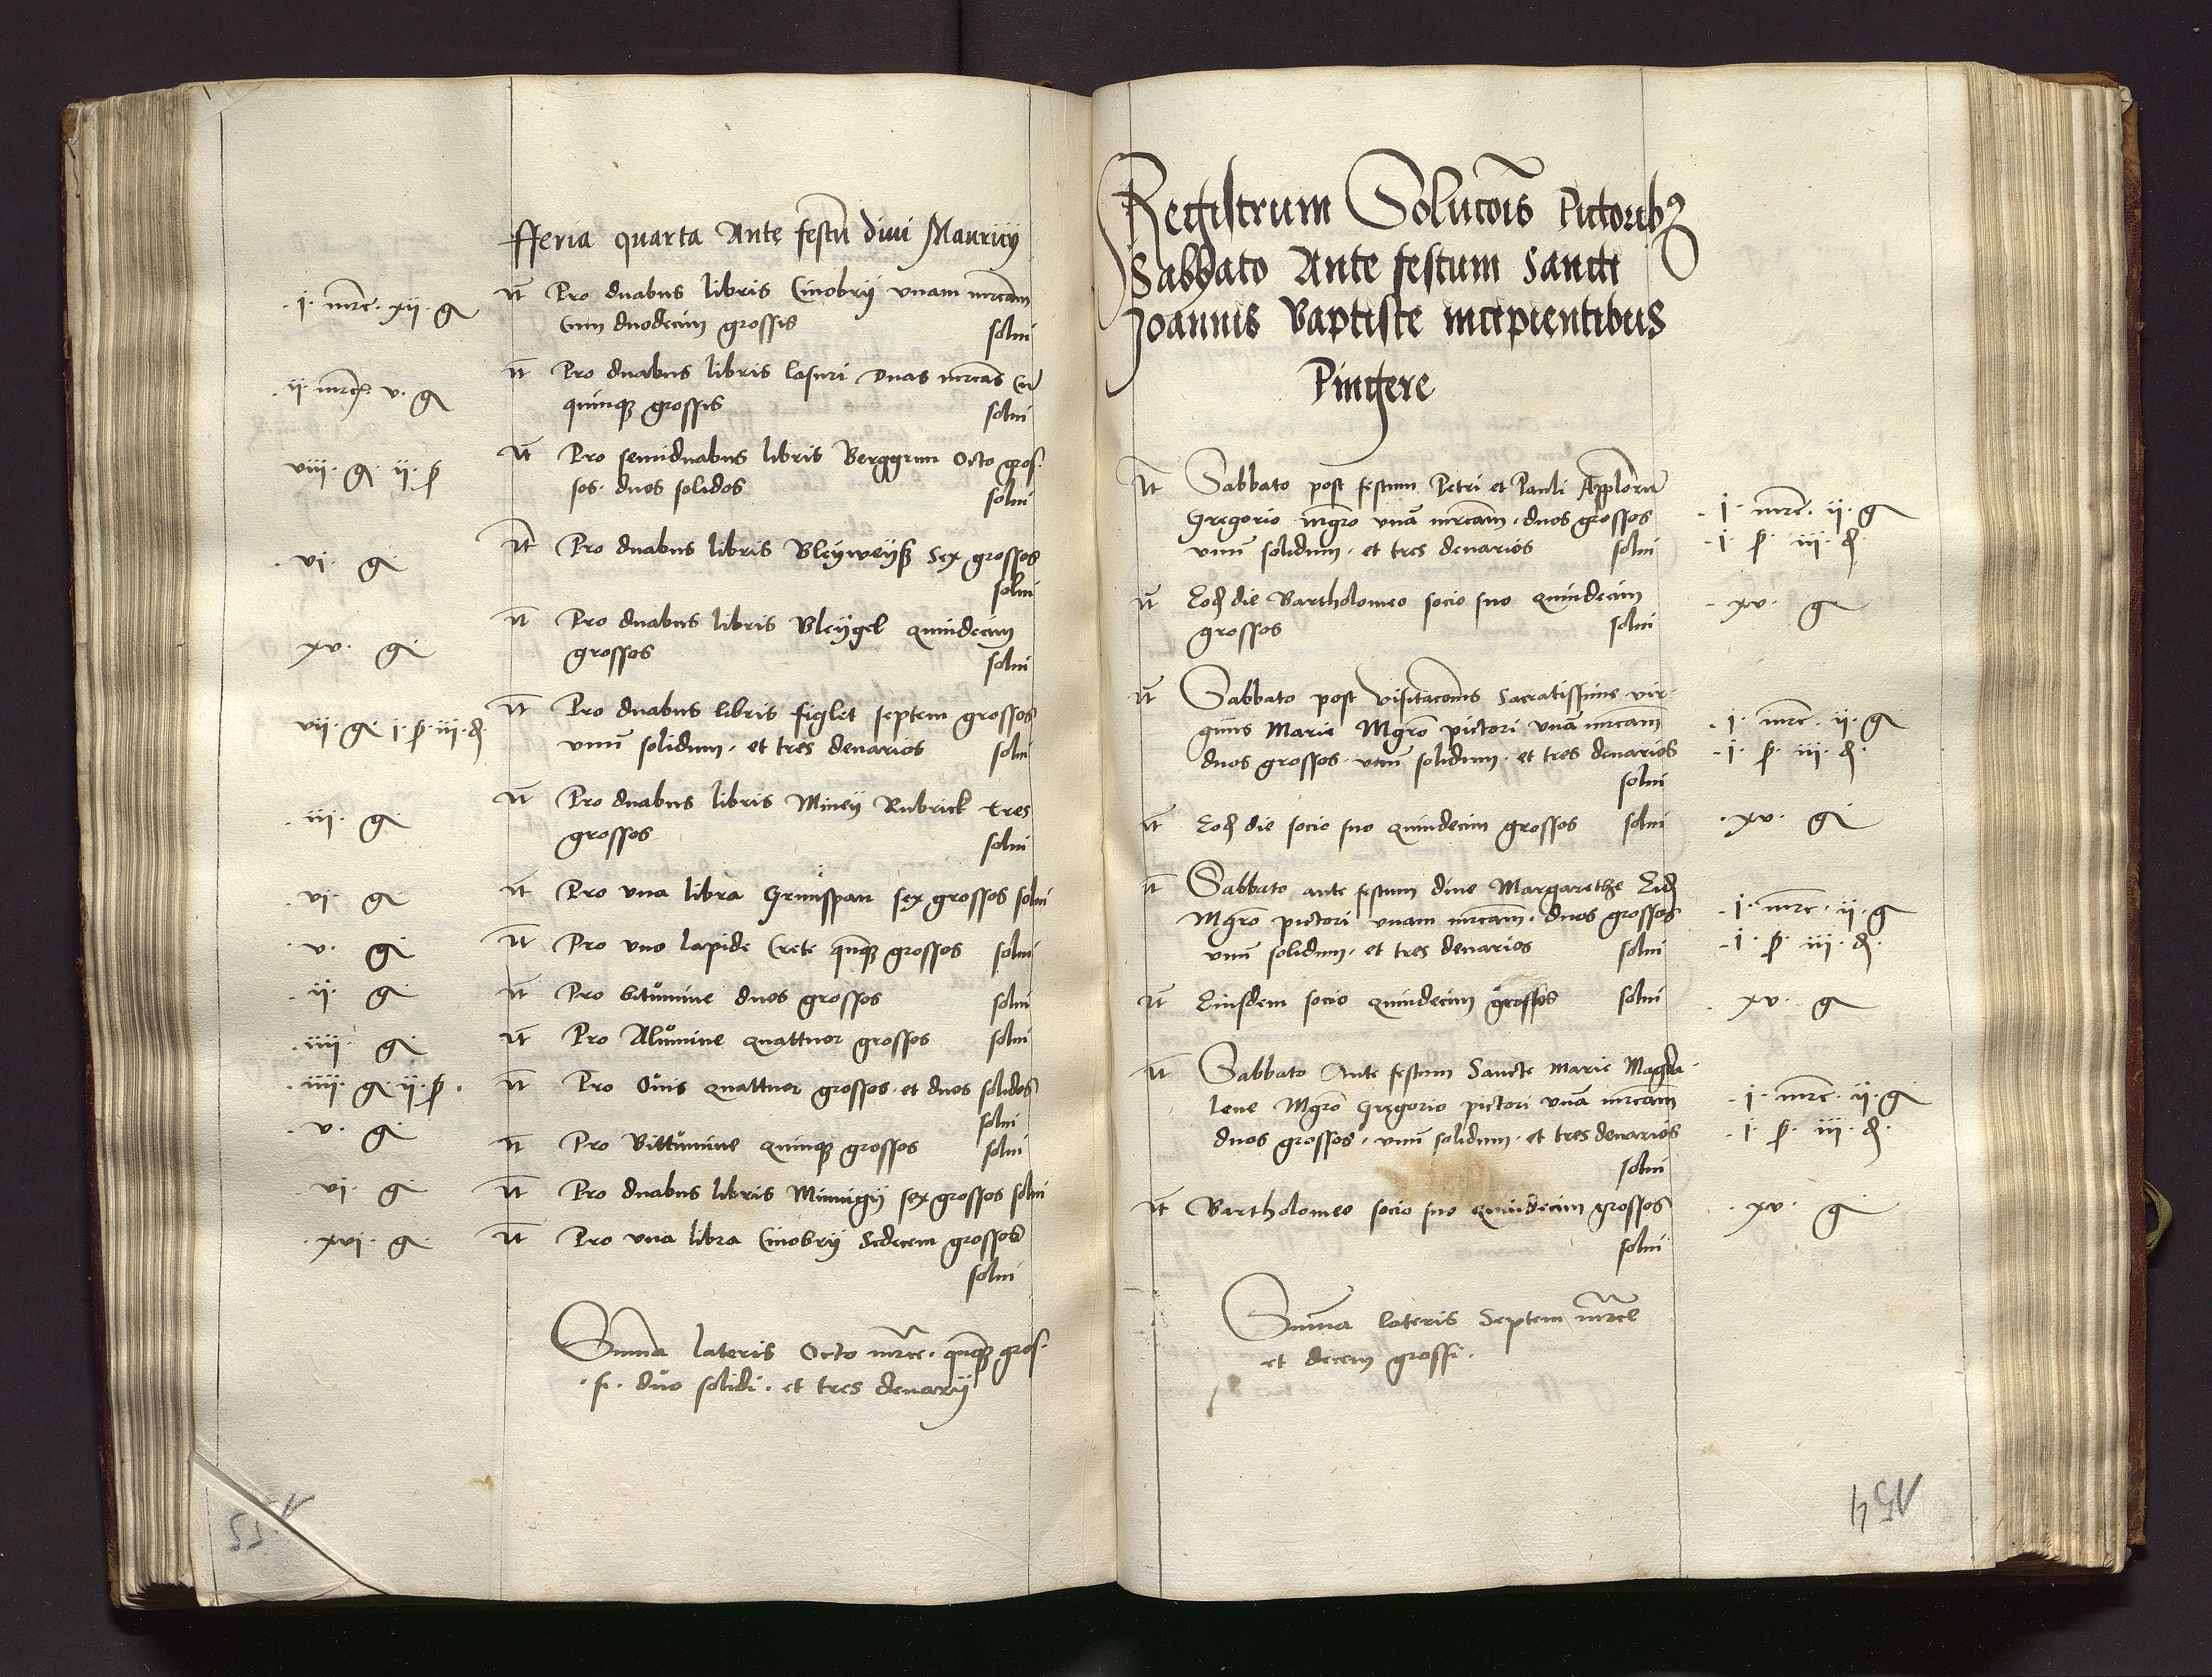 fferia quarta Ante festū diui Mauricij
·i· mrc̄· xij· g
It̄ Pro duabus libris Cinobrij vnam mrcam
Cum duodecim grossis solui
ij· mrc̄· v· g
It̄ Pro duabus libris lasuri Duas mrcas Cū
quinqꝫ grossis solui
viij· g· ij· ꝑ
It̄ Pro semiduabus libris Berggrun Octo gros-
sos· duos solidos solui
·vi· g·
It̄ Pro duabus libris Bleyweyß Sex grossos
solui
xv· g·
It̄ Pro duabus libris Bleygel quindecim
grossos solui
vij· g· i· ꝑ· iij· ₰
It̄ Pro duabus libris figlet septem grossos
vnū solidum· et tres denarios solui
·iij· g·
It̄ Pro duabus libris Minij Rubrick tres
grossos solui
·vi· g·
It̄ Pro vna libra Grunspan sex grossos solui
·v· g·
It̄ Pro vno lapide Crete qūqꝫ grossos solui
·ij· g·
It̄ Pro bitůmine duos grossos solui
·iiij· g·
It̄ Pro Alůmine quattuor grossos solui
·iiij· g· ij· ꝑ·
It̄ Pro Ouis quattuor grossos· et duos solidos
solui
·v· g·
It̄ Pro Bittůmine quinqꝫ grossos solui
·vi· g·
It̄ Pro duabus libris Minigij sex grossos solui
·xvi· g·
It̄ Pro vna libra Cinobrij Sedecem grossos
solui
Sum̄a lateris Octo mrce· qūqꝫ gros-
·si· dŭo solidi· et tres denarij
Registrum Solucōis Pictoribꝫ
Sabbato Ante festum Sancti
Joannis Baptiste incipientibus
Pingere
It̄ Sabbato post festum Petri et Pauli App̄lorū
Gregorio mgr̄o vnā mrcam· duos grossos ·i· mrc̄· ij· g
vnū solidum· et tres denarios solui ·i· ꝑ· iij· ₰·
It̄ Eod̄ die Bartholomeo socio suo quindecim ·xv· g
grossos solui
It̄ Sabbato post visitacōnis Sacratissime vir-
ginis Marie Mgr̄o pictori vnā mrcam ·i· mrc· ij· g·
duos grossos· vnū solidum· et tres denarios ·i· ꝑ· iij· ₰·
solui
It̄ Eod̄ die socio suo quindecim grossos solui ·xv· g·
It̄ Sabbato ante festum diue Margarethe Eid̄
Mgr̄o pictori vnam mrcam· duos grossos ·i· mrc· ij· g
vnū solidum· et tres denarios solui ·i· ꝑ· iij· ₰·
It̄ Eiusdem socio quindecim grossos solui ·xv· g
It̄ Sabbato Ante festum Sancte Marie Magda-
lene Mgr̄o Gregorio pictori vnā mrcam ·i· mrc· ij· g·
duos grossos· vnū solidum· et tres denarios ·i· ꝑ· iij· ₰·
solui
It̄ Bartholomeo socio suo quindecim grossos ·xv· g·
solui
Sum̄a lateris Septem mrce
et decem grossi·
154